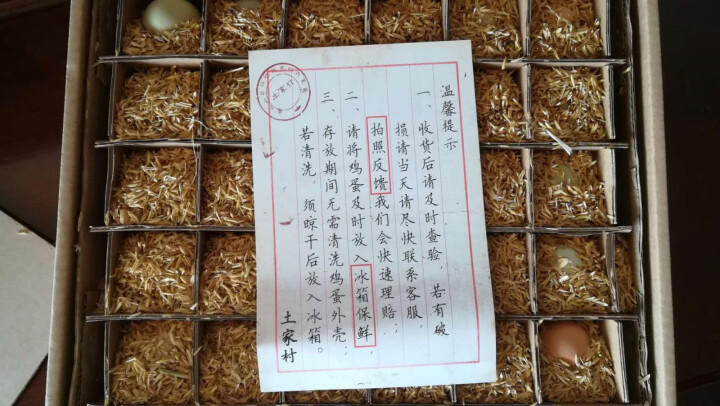 温馨提示
一、收货后请及时查验，若有破
损请当天请尽快联系客服，
拍照反馈我们会快速理赔；
二、请将鸡蛋及时放入冰箱保鲜，
三、存放期间无需清洗鸡蛋外壳；
若清洗，须晾干后放入冰箱。
土家村
土家村